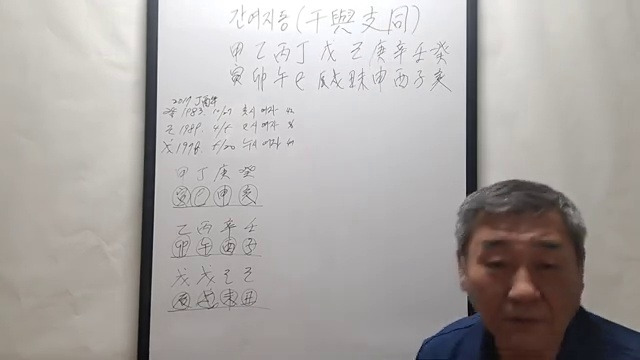 간여지동(干與支同)
甲乙丙丁戊己庚辛壬癸
寅卯午巳辰戌丑未申酉子亥
2017 丁酉年
1983.
己 1989. 4/5
戊 1978 5/20
甲丁庚癸
寅巳申亥
乙丙辛壬
卯午酉子
戊戊己己
辰戌未丑